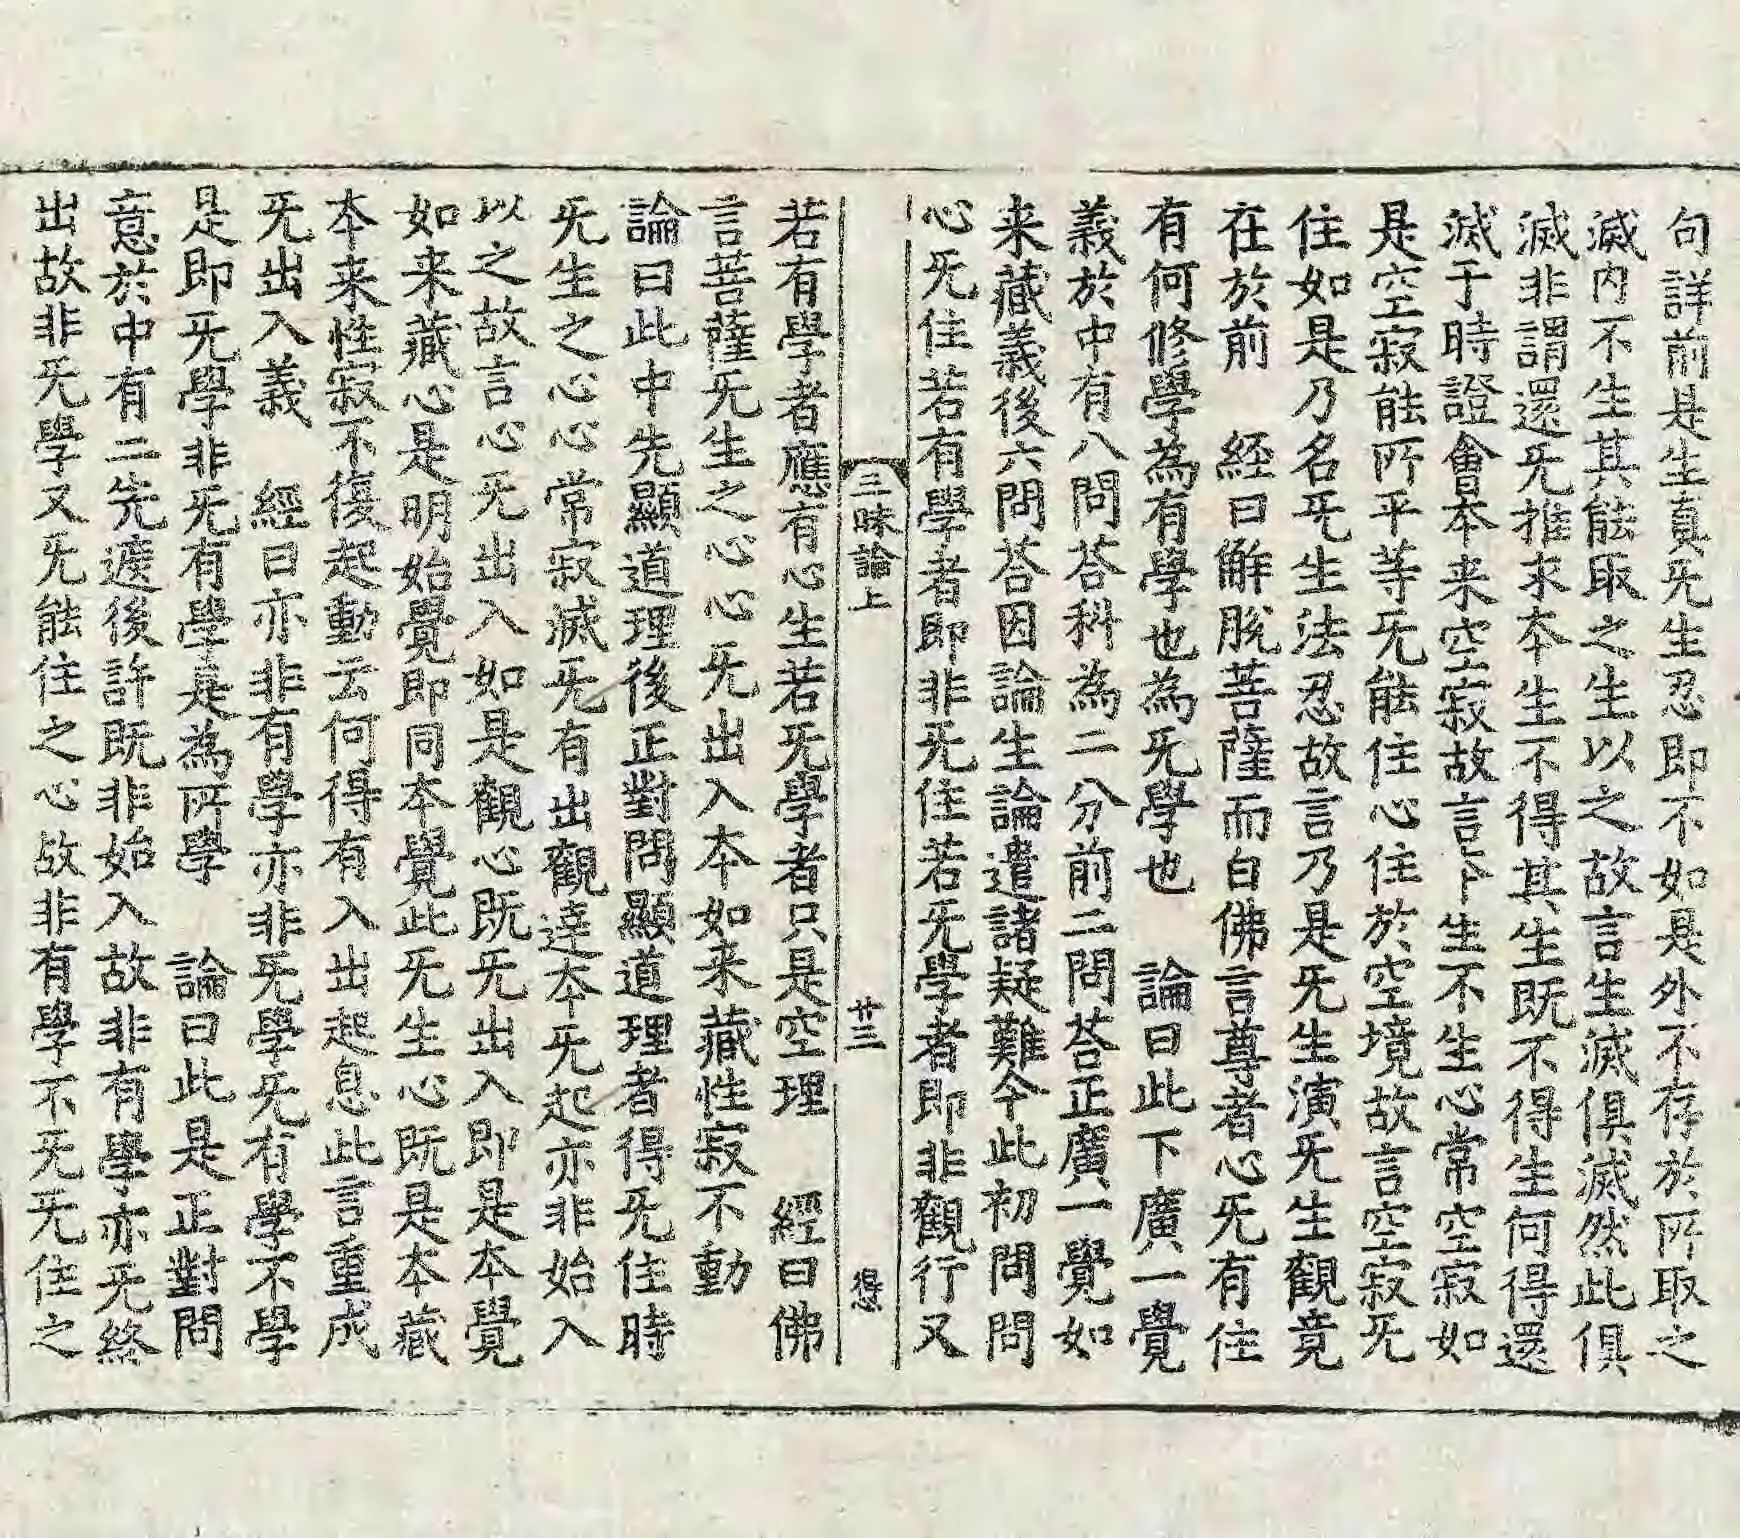 句詳前是生真旡生忍即不如是外不存於所取之
滅内不生其能取之生以之故言生滅俱滅然此俱
滅非謂還旡推求本生不得其生既不得生何得還
滅于時證會本来空寂故言不生不生心常空寂如
是空寂能所平等旡能住心住於空境故言空寂旡
住如是乃名旡生法忍故言乃是旡生演旡生觀竟
在於前　経曰解脫菩薩而白佛言尊者心旡有住
有何修學為有學也為旡學也　論曰此下廣一覺
義於中有八問荅科為二分前二問荅正廣一覺如
来藏義後六問荅因論生論遣諸疑難今此初問問
心旡住若有學者即非旡住若旡學者即非觀行又
三昧論上　廿三　得㤙
若有學者應有心生若旡學者只是空理　經曰佛
言菩薩旡生之心心旡出入本如来藏性寂不動
論曰此中先顯道理後正對問顯道理者得旡住時
旡生之心心常寂滅旡有出觀達本旡起亦非始入
以之故言心旡出入如是觀心既旡出入即是本覺
如来藏心是明始覺即同本覺此旡生心既是本藏
本来性寂不復起動云何得有入出起息此言重成
旡出入義　經曰亦非有學亦非旡學旡有學不學
是即旡學非旡有學是為所學　論曰此是正對問
意於中有二先遮後許既非始入故非有學亦旡終
出故非旡學又旡能住之心故非有學不旡旡住之